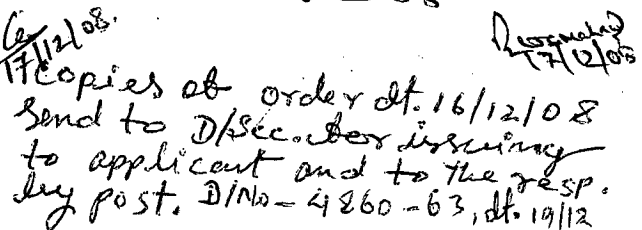 17/12/08. 17/12/08
copies of order dt. 16/12/08
Send to D/Sec. for issuing
to applicant and to the resp.
by post. D/No - 4860 - 63, dt. 19/12